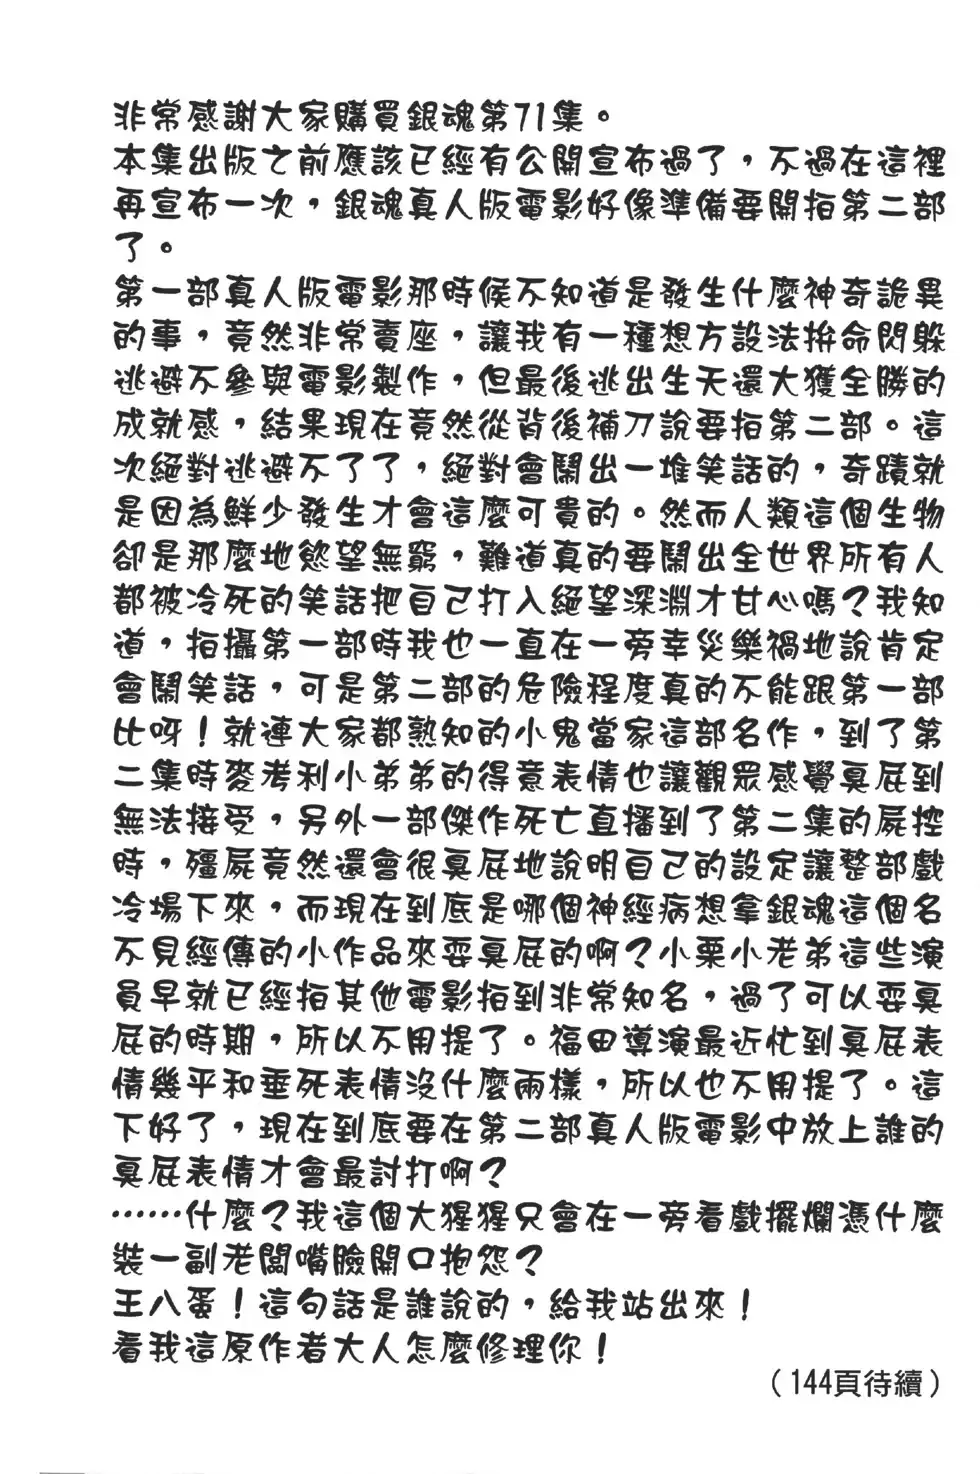 非常感謝大家購買銀魂第71集。
本集出版之前應該已經有公開宣布過了，不過在這裡
再宣布一次，銀魂真人版電影好像準備要開拍第二部
了。
第一部真人版電影那時候不知道是發生什麼神奇詭異
的事，竟然非常賣座，讓我有一種想方設法拚命閃躲
逃避不參與電影製作，但最後逃出生天還大獲全勝的
成就感，結果現在竟然從背後補刀說要拍第二部。這
次絕對逃避不了了，絕對會鬧出一堆笑話的，奇蹟就
是因為鮮少發生才會這麼可貴的。然而人類這個生物
卻是那麼地慾望無窮，難道真的要鬧出全世界所有人
都被冷死的笑話把自己打入絕望深淵才甘心嗎？我知
道，拍攝第一部時我也一直在一旁幸災樂禍地說肯定
會鬧笑話，可是第二部的危險程度真的不能跟第一部
比呀！就連大家都熟知的小鬼當家這部名作，到了第
二集時麥考利小弟弟的得意表情也讓觀眾感覺臭屁到
無法接受，另外一部傑作死亡直播到了第二集的屍控
時，殭屍竟然還會很臭屁地說明自己的設定讓整部戲
冷場下來，而現在到底是哪個神經病想拿銀魂這個名
不見經傳的小作品來耍臭屁的啊？小栗小老弟這些演
員早就已經拍其他電影拍到非常知名，過了可以耍臭
屁的時期，所以不用提了。福田導演最近忙到臭屁表
情幾乎和垂死表情沒什麼兩樣，所以也不用提了。這
下好了，現在到底要在第二部真人版電影中放上誰的
臭屁表情才會最討打啊？
⋯⋯什麼？我這個大猩猩只會在一旁看戲擺爛憑什麼
裝一副老闆嘴臉開口抱怨？
王八蛋！這句話是誰說的，給我站出來！
看我這原作者大人怎麼修理你！
（144頁待續）